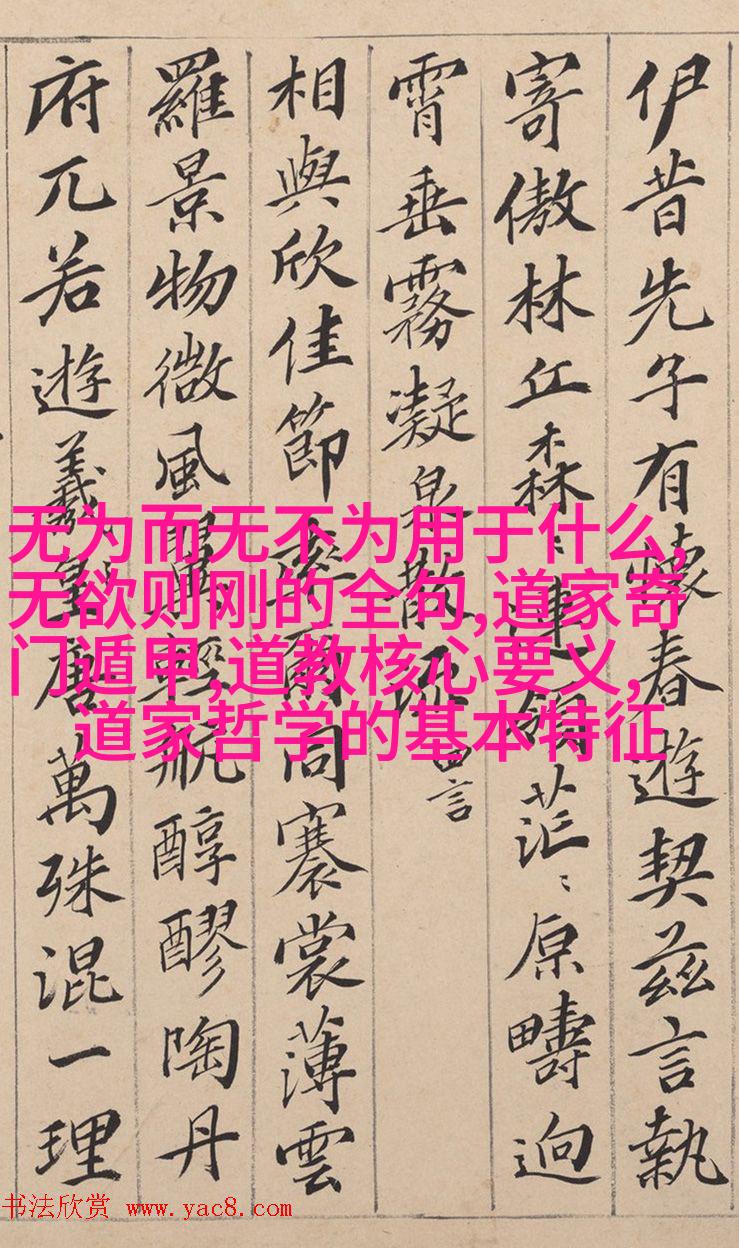 伊昔先子有懷春遊契茲言執
寄傲林丘森〻連嶺茫〻原疇逈
霄垂霧凝泉散流言
相與欣佳節率爾同褰裳薄雲
羅景物微風翼輕航醇醪陶丹
府兀若遊羲皇唐萬殊混一理
无为而无不为用于什么,
无欲则刚的全句,道家奇
门遁甲,道教核心要义,
道家哲学的基本特征
书法欣赏 www.yac8.com